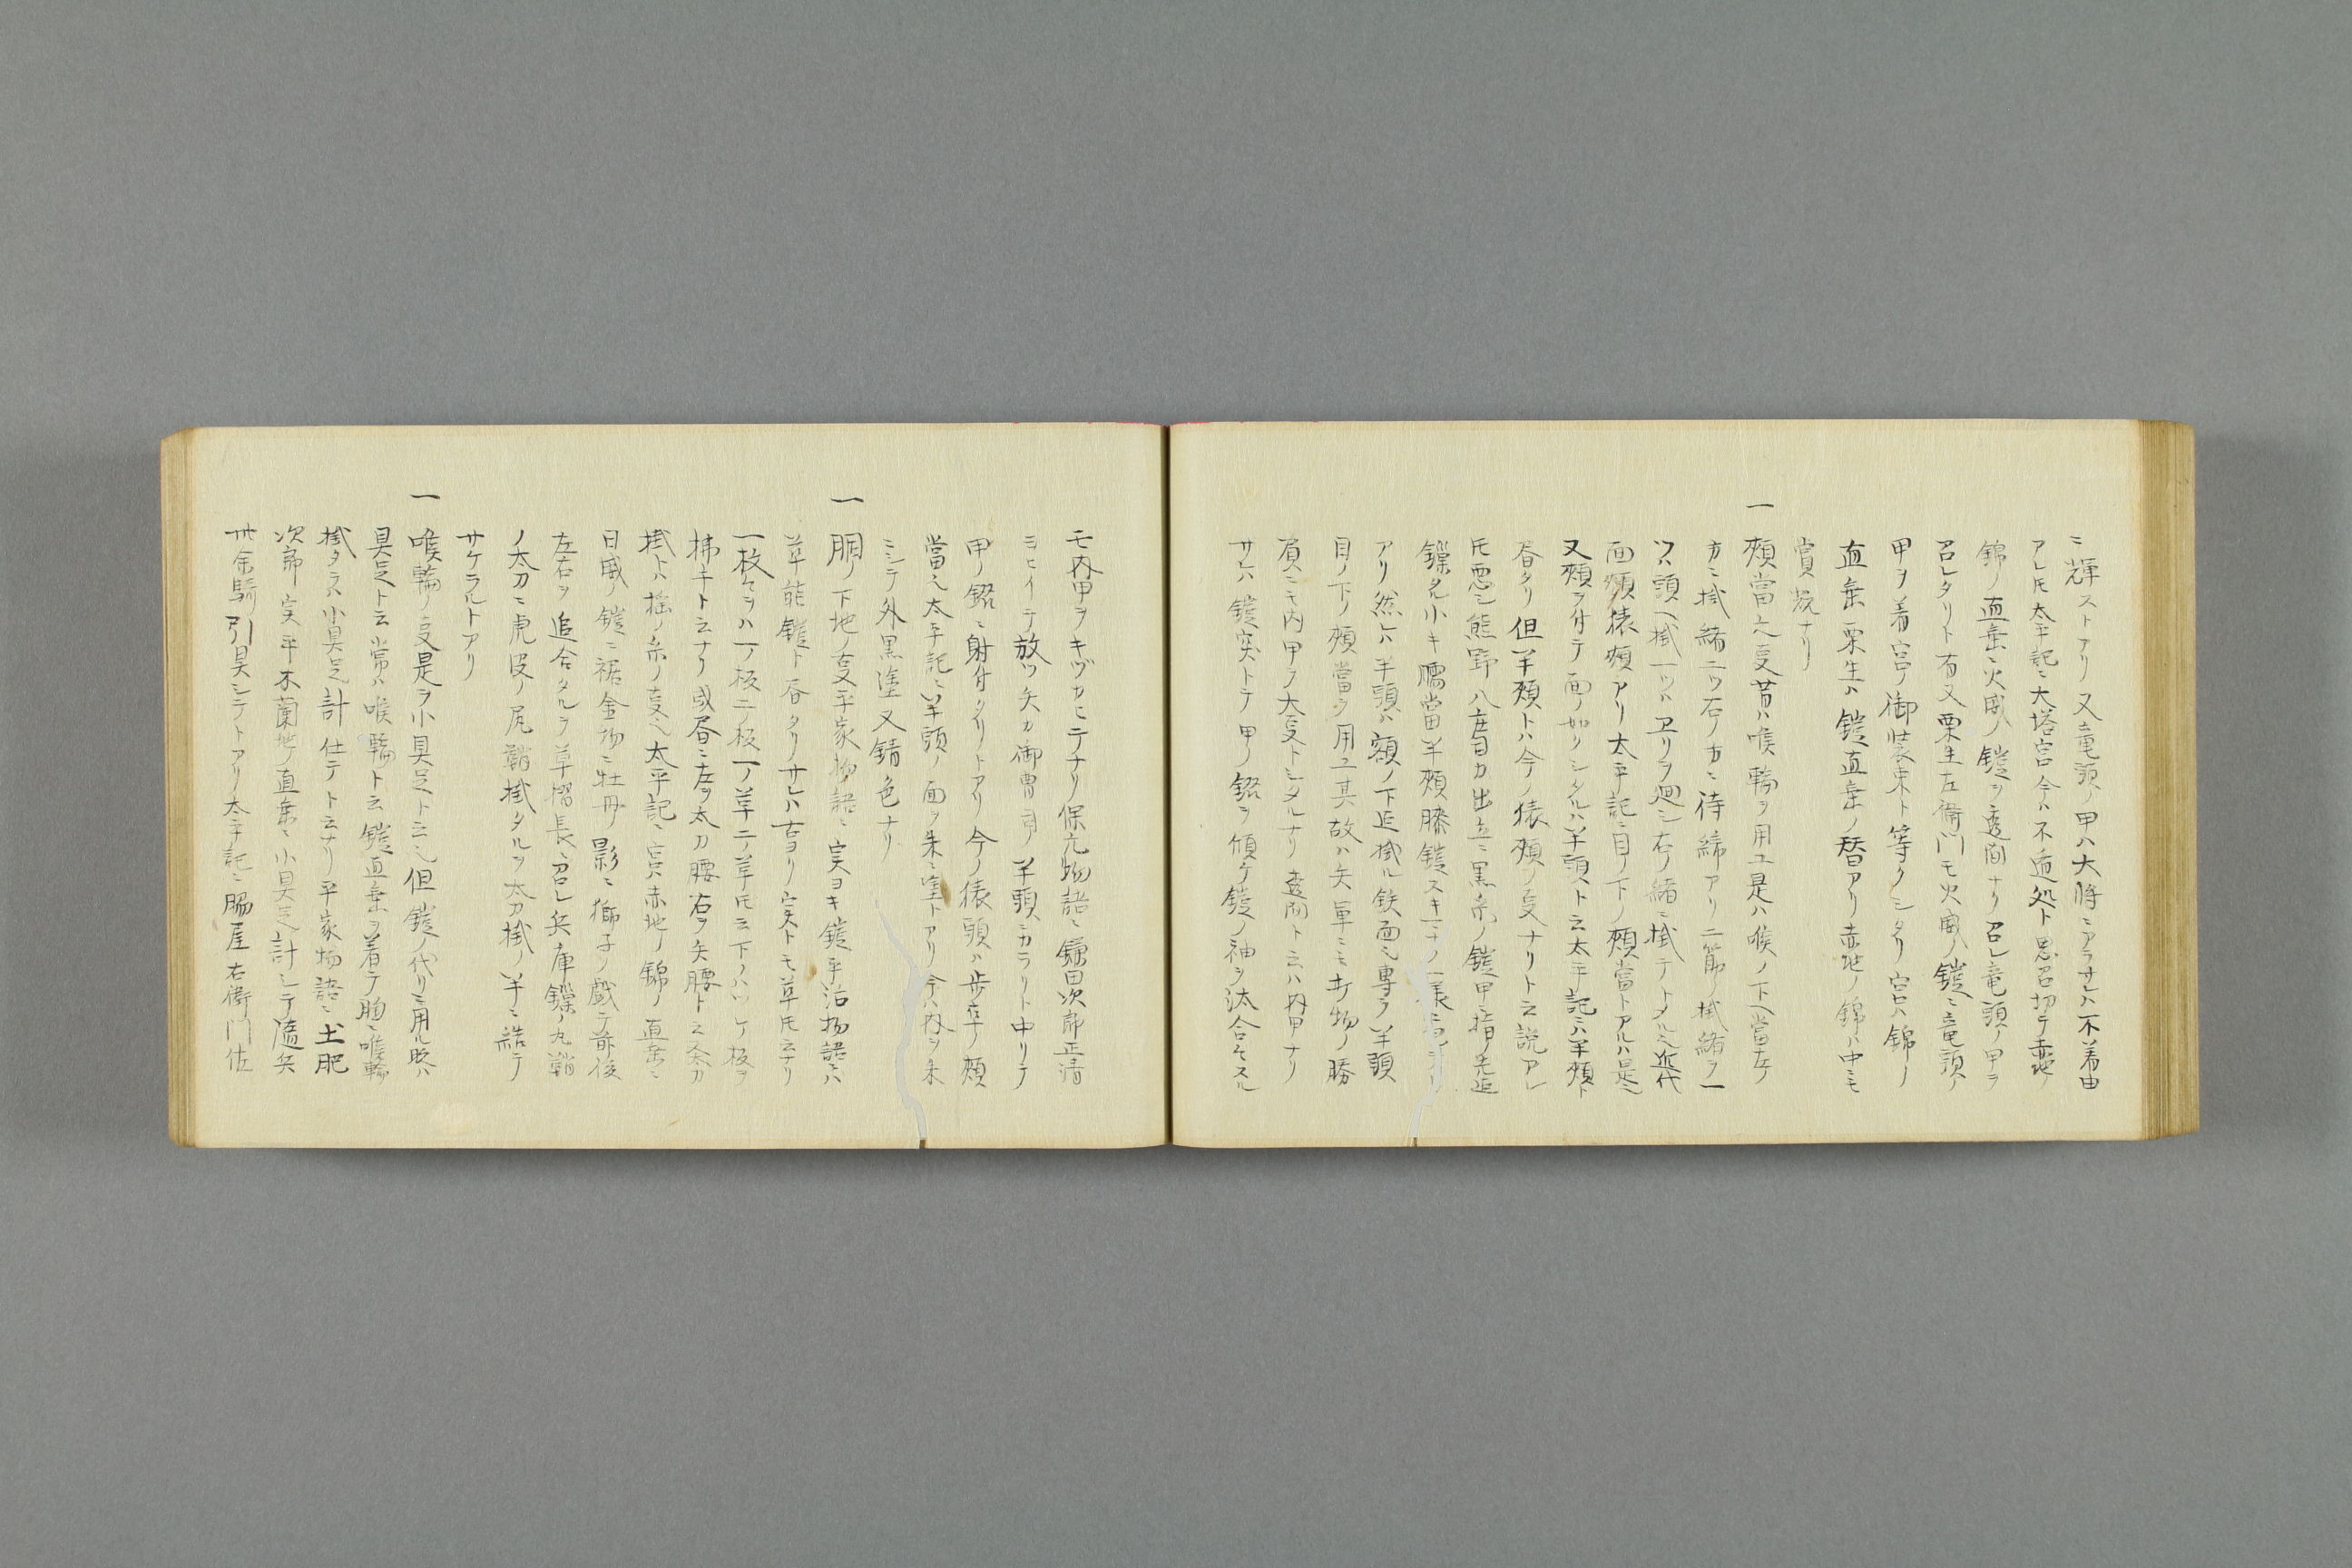 ニ輝ストアリ又竜頭ノ甲ハ大将ニアラサレハ不着由
アレ𪜈太平記ニ大塔宮今ハ不遁処ト思召切テ赤地ノ
錦ノ直垂ニ火威ノ鎧ヲ透間ナリ召レ竜頭ノ甲ヲ
召レタリト有又栗生左衛門モ火威ノ鎧ニ竜頭ノ
甲ヲ着宮ノ御装束ト等クシタリ宮ハ錦ノ
直垂栗生ハ鎧直垂ノ替アリ赤地ノ錦ハ中ニモ
賞翫ナリ
一 頬當之叓昔ハ喉輪ヲ用ユ是ハ喉ノ下ヘ當左ノ
方ニ掛緒二ツ右ノ方ニ待締アリ二筋ノ掛緒ヲ一
ツハ頭ヘ掛一ツハヱリヲ廻シ右ノ緒ニ掛テトメル也近代
面頬猿頬アリ太平記ニ目ノ下ノ頬當トアルハ是也
又頬ヲ付テ面ノ如クシタルハ半頭ト云太平記ニハ半頬ト
呑タリ但半頬トハ今ノ猿頬ノ叓ナリト云説アレ
𪜈悪シ熊野八庄司カ出立ニ黒糸ノ鎧甲ニ指ノ先迠
鏁タル小キ臑當半頬膝鎧スキ
アリ然レハ半頭ハ額ノ下迠掛ル鉄面也専ラ半頭
目ノ下ノ頬當ヲ用ユ其故ハ矢軍ニモ打物ノ勝
負ニモ内甲ヲ大叓トシタルナリ透間ト云ハ内甲ナリ
サレハ鎧突トテ甲ノ錣ヲ傾ケ鎧ノ袖ヲ汰合セスル
モ内甲ヲキヅカヒテナリ保元物語ニ鎌田次郎正清
ヨヒイテ放ツ矢カ御曹司ノ半頭ニカラリト中リテ
甲ノ錣ニ射付タリトアリ今ノ猿頭ハ歩卒ノ頬
當也太平記ニ半頭ノ面ヲ朱ニ塗トアリ今ハ内ヲ朱
ニシテ外黒塗又錆色ナリ
一 胴ノ下地ノ叓平家物語ニ実ヨキ鎧平治物語ニハ
草能鎧ト呑タリサレハ古ヨリ実トモ草𪜈云ナリ
一枚ヲハ一ノ板二ノ板一ノ草二ノ草𪜈云下ノハツケ板ヲ
拂千ト云ナリ或呑ニ左ヲ太刀腰右ヲ矢腰ト云太刀
掛トハ揺ノ糸ノ叓也太平記ニ宮赤地ノ錦ノ直垂ニ
日威ノ鎧ニ裾金物ニ牡丹ノ影ニ獅子ノ戯テ前後
左右ヲ追合タルヲ草摺長ニ召レ兵庫鏁ノ丸鞘
ノ太刀ニ虎皮ノ尻鞘掛タルヲ太刀掛ノ半ニ結テ
サケラルトアリ
一 喉輪ノ叓是ヲ小具足ト云也但鎧ノ代リニ用ル眨ハ
具足ト云常ハ喉輪ト云鎧直垂ヲ着テ胸ニ喉輪
掛タラハ小具足計仕テト云ナリ平家物語ニ土肥
次郎実平木蘭地ノ直垂ニ小具足計シテ随兵
卅余騎引具シテトアリ太平記ニ脇屋右衛門佐